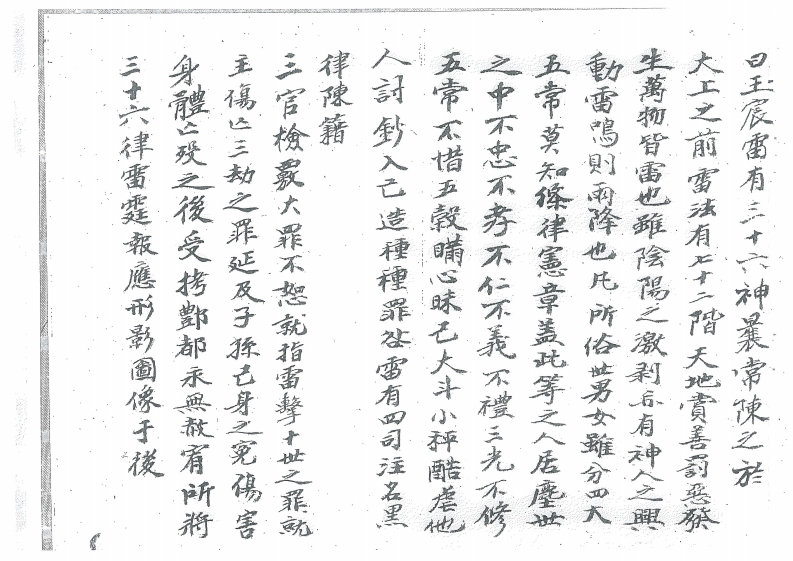 曰玉宸雷有三十六神曩常陳之於
大上之前雷法有七十二階天地賞善罰惡發
生萬物皆雷也雖陰陽之激剥亦有神人之興
動雷鳴則雨降也凡所俗世男女雖分四大
五常莫知條律憲章蓋此等之人居塵世
之中不忠不孝不仁不義不禮三光不修
五常不惜五穀瞞心昧己大斗小秤酷虐他
人討鈔入己造種種罪愆雷有四司注名黑
律陳籍
三官檢覈大罪不恕就指雷擊十世之罪就
主傷亡三劫之罪延及子孫己身之冤傷害
身體亡殁之後受拷酆都永無赦宥所將
三十六律雷霆報應形影圖像于後